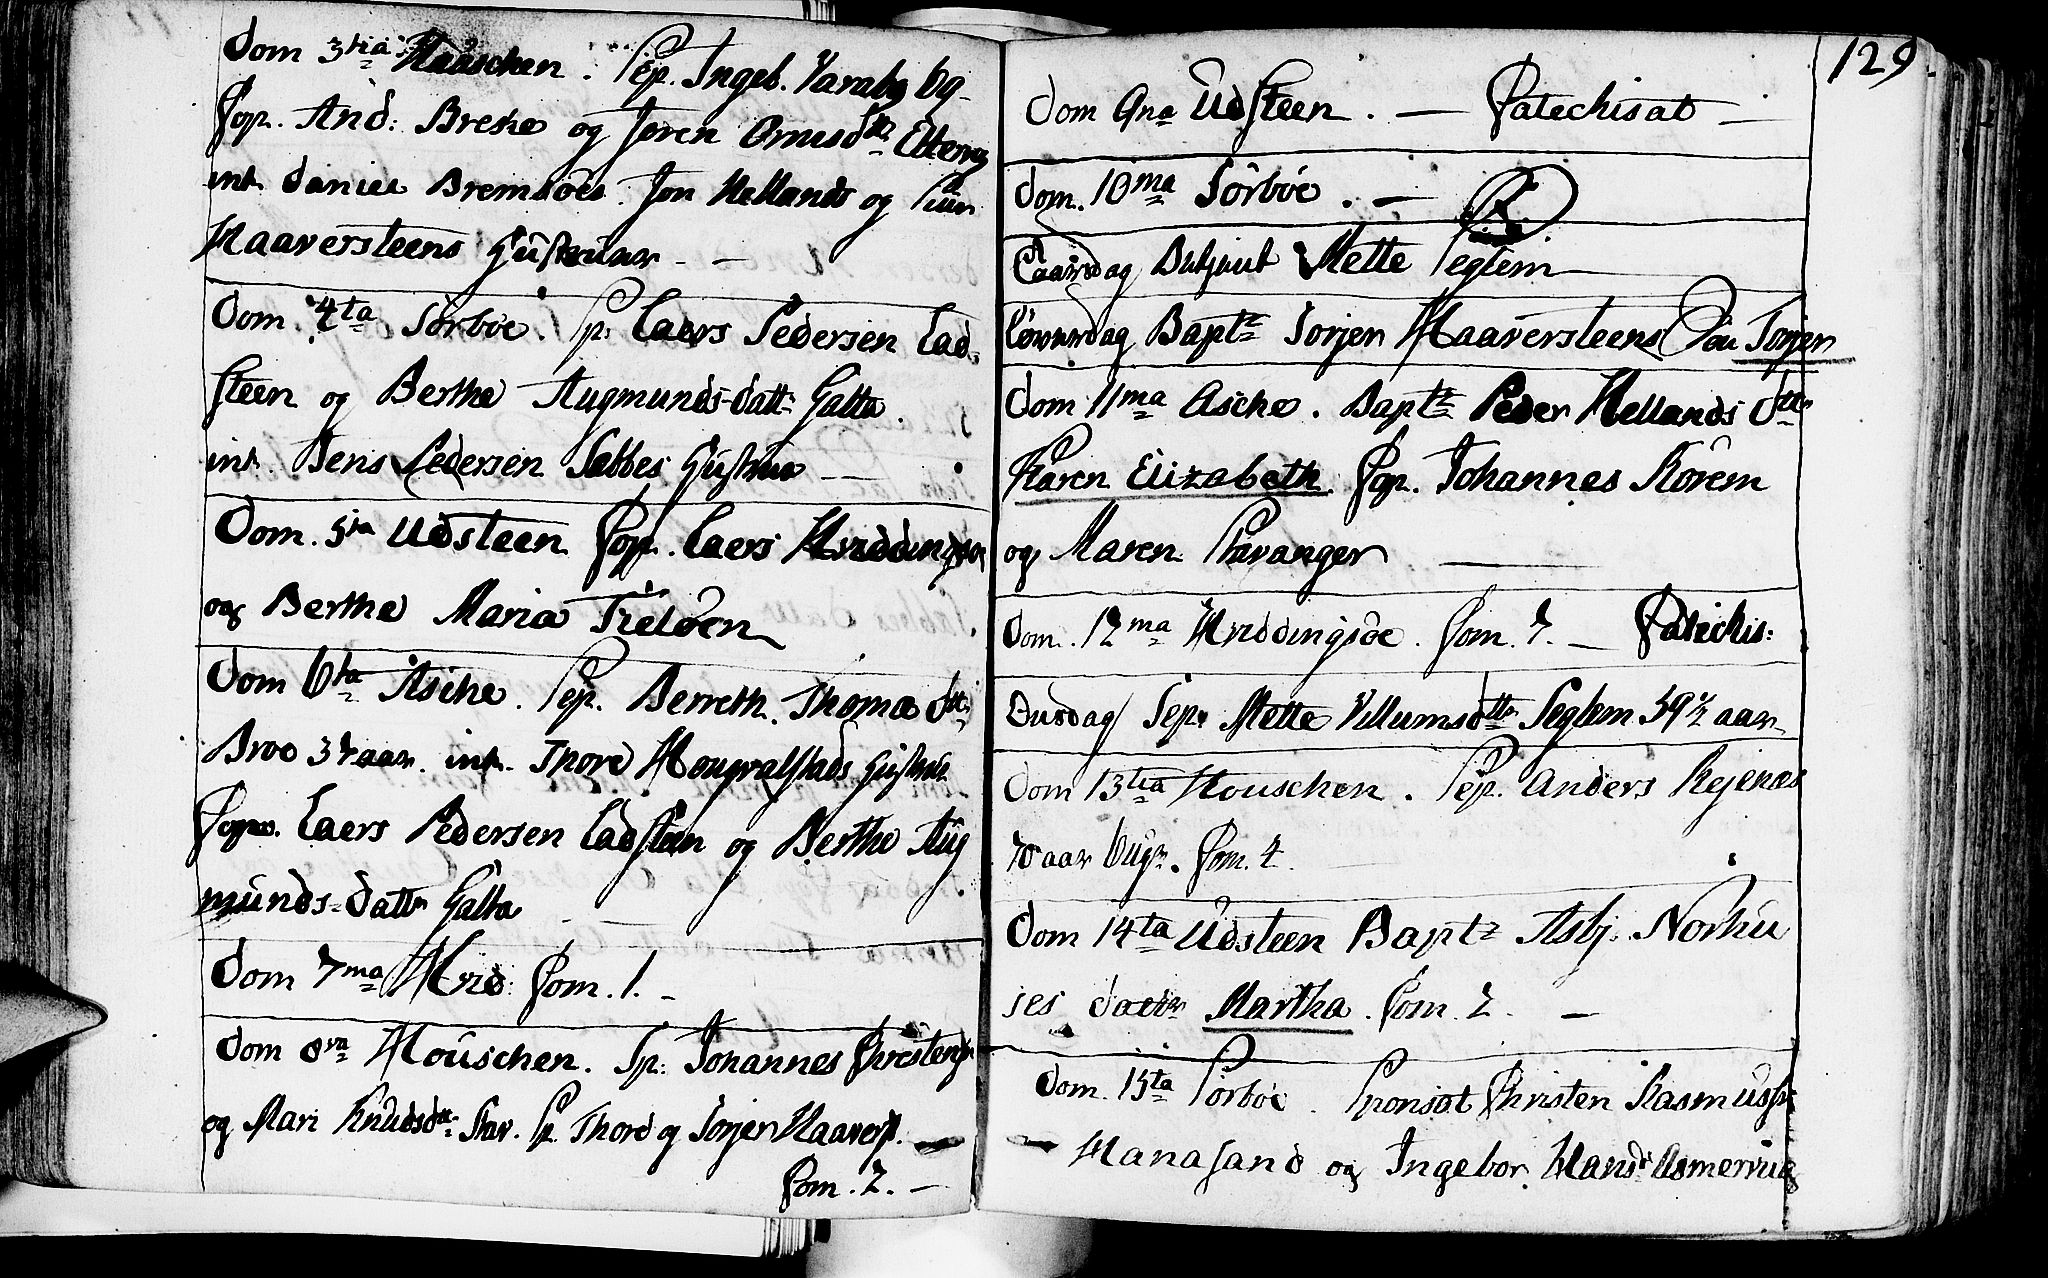 Dom 3tia Hauschen. Sep. Ingeb. Varaby 6g
Cop. And: Breche og Joren Ormsdtt
int. Daniel Bremsoes. Jon Hellands og
Haaversteens Hustruer
Dom. 4ta Sorboe. Sp: Laers Pedersen Lad-
steen og Berthe Augmunds-datt: Galta.
int. Jens Pedersen Sebbes Hustrue
Dom. 5ta Udsteen Cop. Laers Hviddingsoe
og Berthe Maria Fieloen
Dom 6ta Asche. Sep. Berreth. Thomæ dtt:
Broe 37 aar. int. Thore Hougvalstads Hustrue
Cop. Laers Pedersen Ladsteen og Berthe Aug
munds-dattr Galta
Dom 7ma Hvid: Com. 1.
Dom 8va Houschen. Sp: Johannes Christens
og Mari Knudsdtt: Stav. Thord og Torjer Haaverst.
Com. 2.
129.
Dom 9na Udsteen. — Catechisat
Dom. 10ma Sorboe. —
Laurdag Mette Seglem
Løverdag Bapt: Torjer Haaversteens Torjer
Dom 11ma Asche. Bapt: Peder Hellands dtt:
Karen Elizabeth Cop. Johannes Rorem
og Maren Stavanger
Dom. 12ma Hviddingsoe. Com. 7. — Catechis:
Onsdag Sep. Mette Villumsdttr Seglem 59½ aar
Dom 13tia Houschen. Sep. Anders Rejenæs
70 aar 6 ugr. Com. 4.
Dom 14ta Udsteen Bapt: Asbj. Norhu
ses dattr Martha. Com. 2.
Dom. 15ta Sorboe. Sponsat Christen Rasmuss:
Hanasand og Ingebor. Hansd: Asmervig